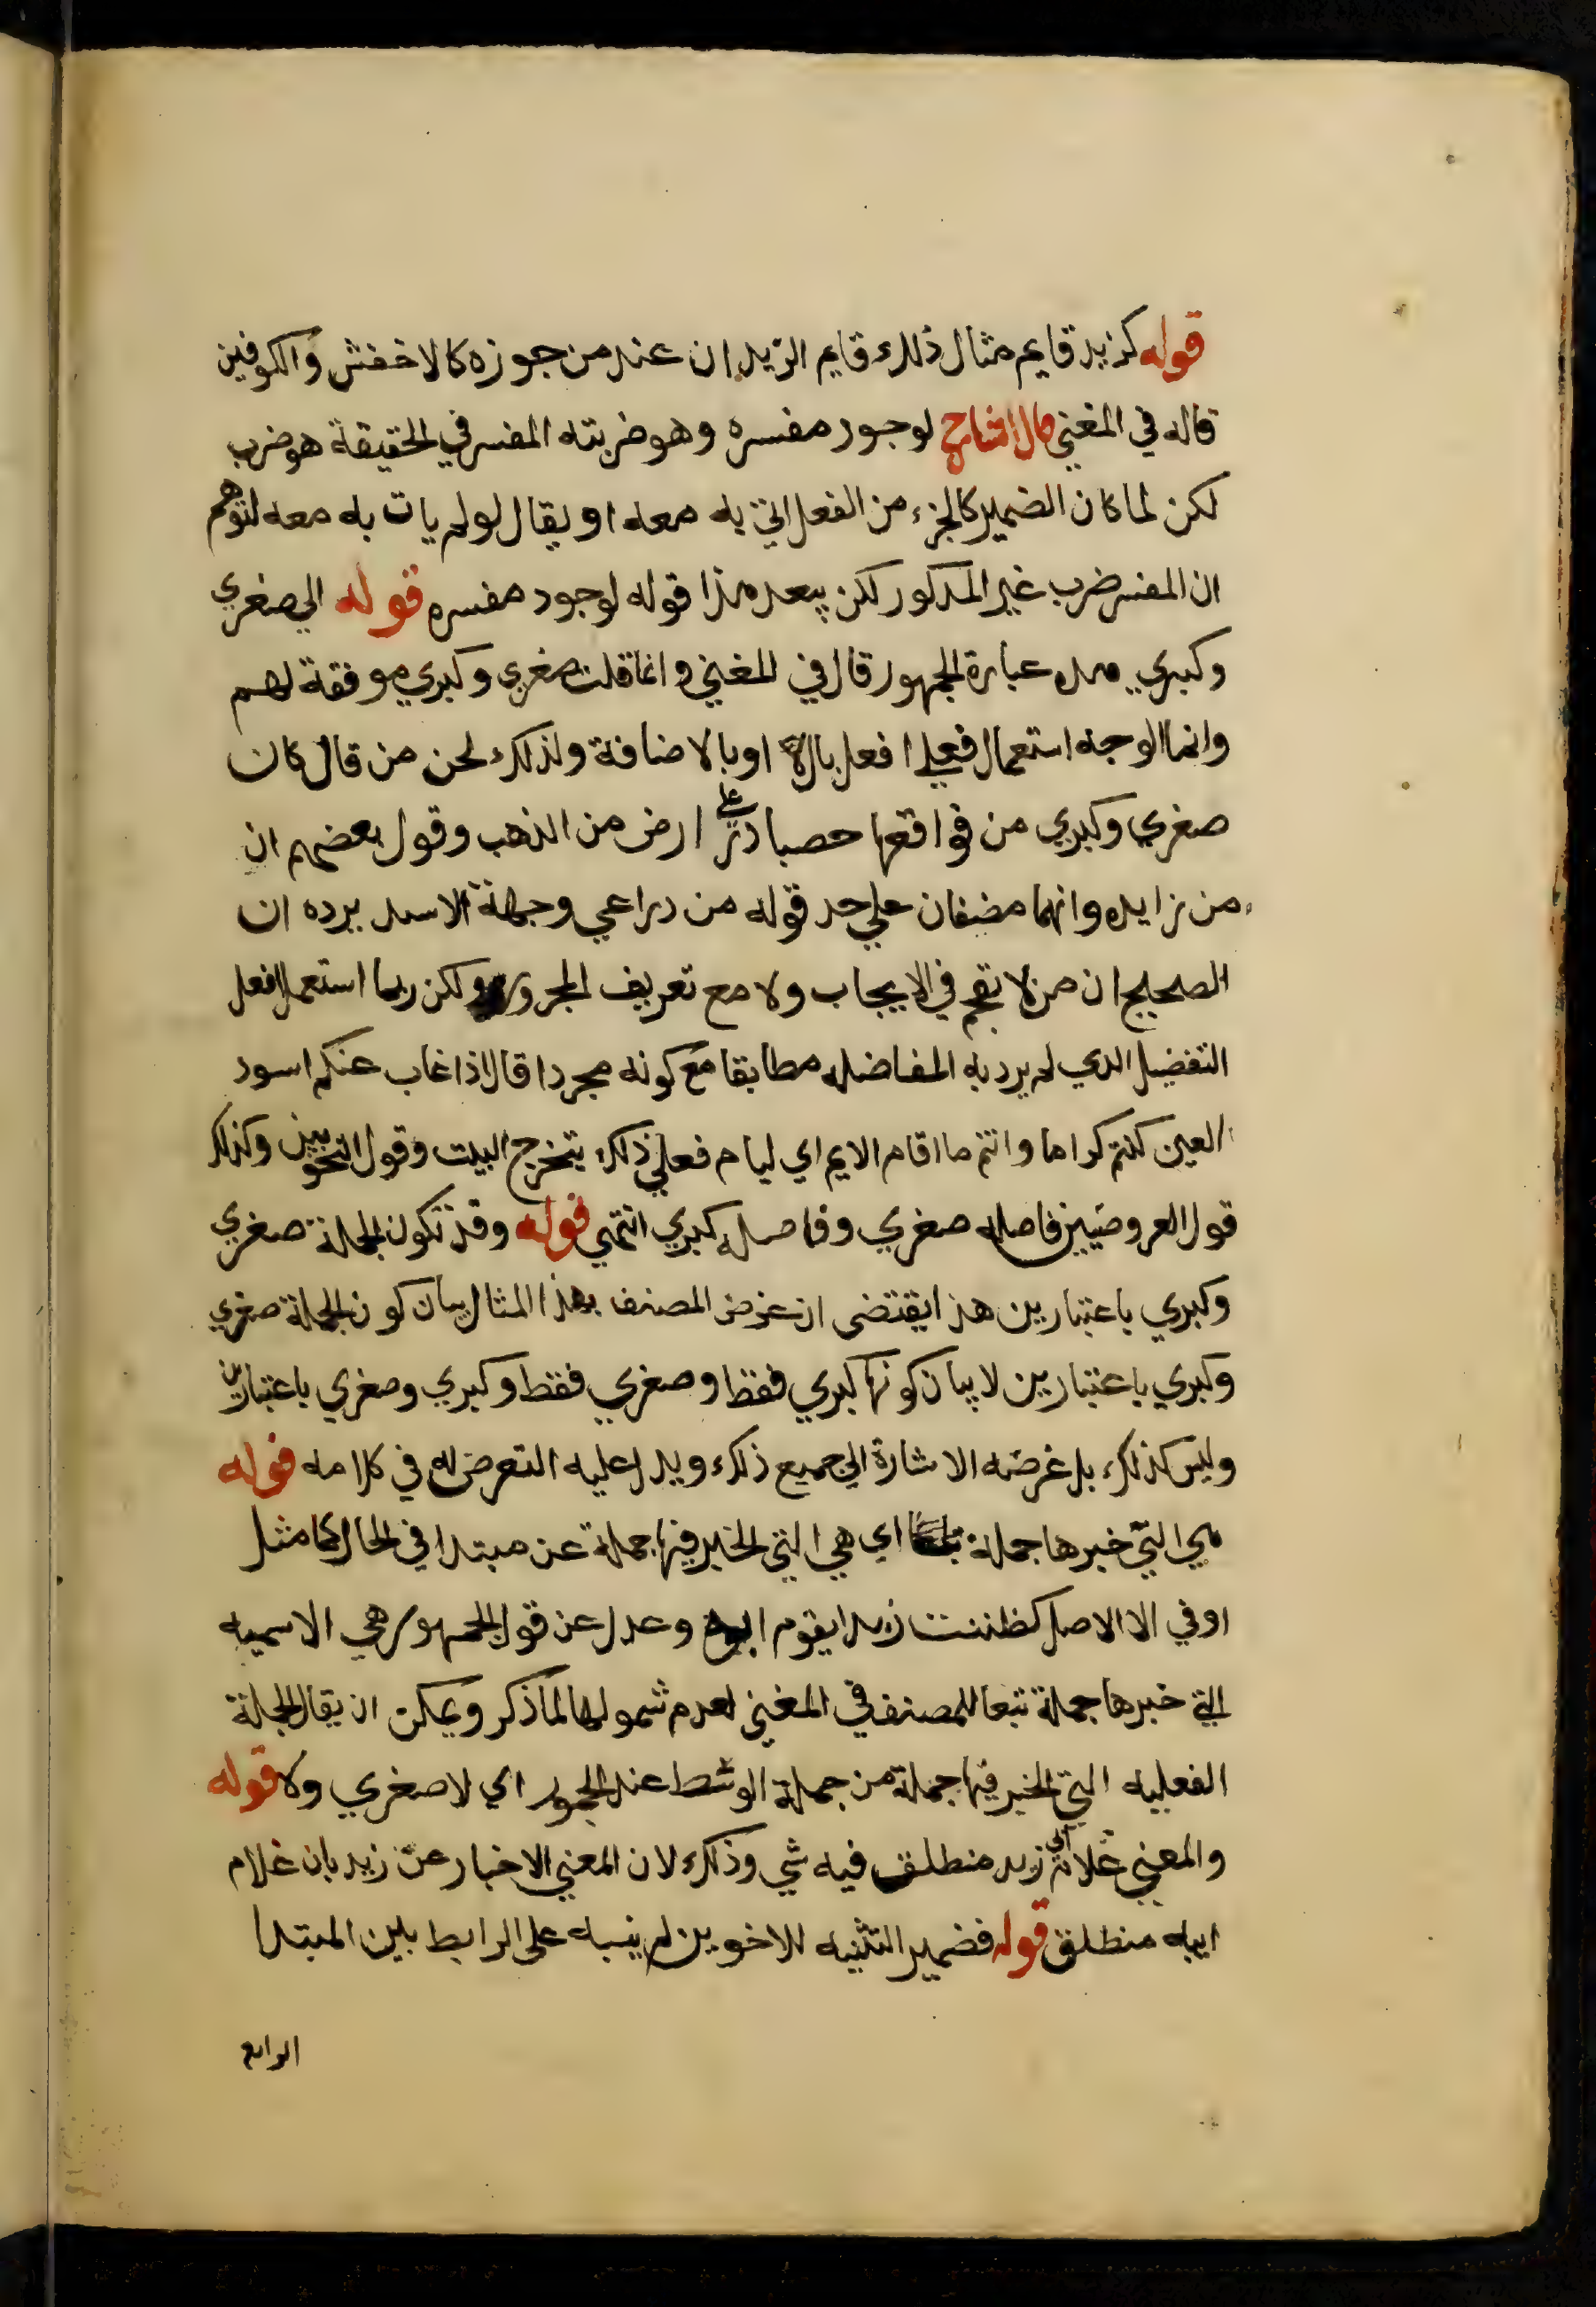 قوله كزيد قايم مثال ذلك قايم الزيدان عند من جوزه كالاخفش والكوفين
قاله في المغني قال الشارح لوجود مفسره وهو ضربته المفسر في الحقيقة هو ضرب
لكن لما كان الضمير كالجزء من الفعل اتي به معه او يقال لو لم يات به معه لتوهم
ان المفسر ضرب غير المذكور لكن يبعد هذا قوله لوجود مفسره قوله الي صغري
وكبري هذه عبارة الجمهور قال في المغني وانما قلت صغري وكبري موفقة لهم
وانما الوجه استعمال فعلي افعل بال او بالاضافة ولذلك لحن من قال كان
صغري وكبري من فواقعها حصبا در علي ارض من الذهب وقول بعضهم ان
من زايده وانهما مضفان علي حد قوله من دراعي وجبهة الاسد يرده ان
الصحيح ان من لا تقحم في الايجاب ولا مع تعريف المجرور ولكن ربما استعمل افعل
التفضيل الدي لم يرد به المفاضله مطابقا مع كونه مجردا قال اذا غاب عنكم اسود
العين كنتم كراما وانتم ما اقام الايم اي ليام فعلي ذلك يتخرج البيت وقول النحويين وكذلك
قول العروضيين فاصله صغري وفاصله كبري انتهي قوله وقد تكون الجملة صغري
وكبري باعتبارين هذا يقتضي ان غرض المصنف بهذا المثال بيان كون الجملة صغري
وكبري باعتبارين لا بيان كونها كبري فقط وصغري فقط وكبري وصغري باعتبارين
وليس كذلك بل غرضه الاشارة الي جميع ذلك ويدل عليه التعرض له في كلامه قوله
هي التي خبرها جملة اي هي التي الخبر فيها جملة عن مبتدا في الحال كما مثل
او في الا الاصل كظننت زيدا يقوم ابوه وعدل عن قول الجمهور هي الاسميه
التي خبرها جملة تبعا للمصنف في المغني لعدم شمولها لما ذكر ويمكن ان يقال الجملة
الفعليه التي الخبر فيها جملة من جملة الوسط عند الجمهور اي لا صغري ولا قوله
والمعني غلام ابي زيد منطلق فيه شي وذلك لان المعني الاخبار عن زيد بان غلام
ابيه منطلق قوله فضمير التثنيه للاخوين لم ينبه علي الرابط بين المبتدا
الرابع